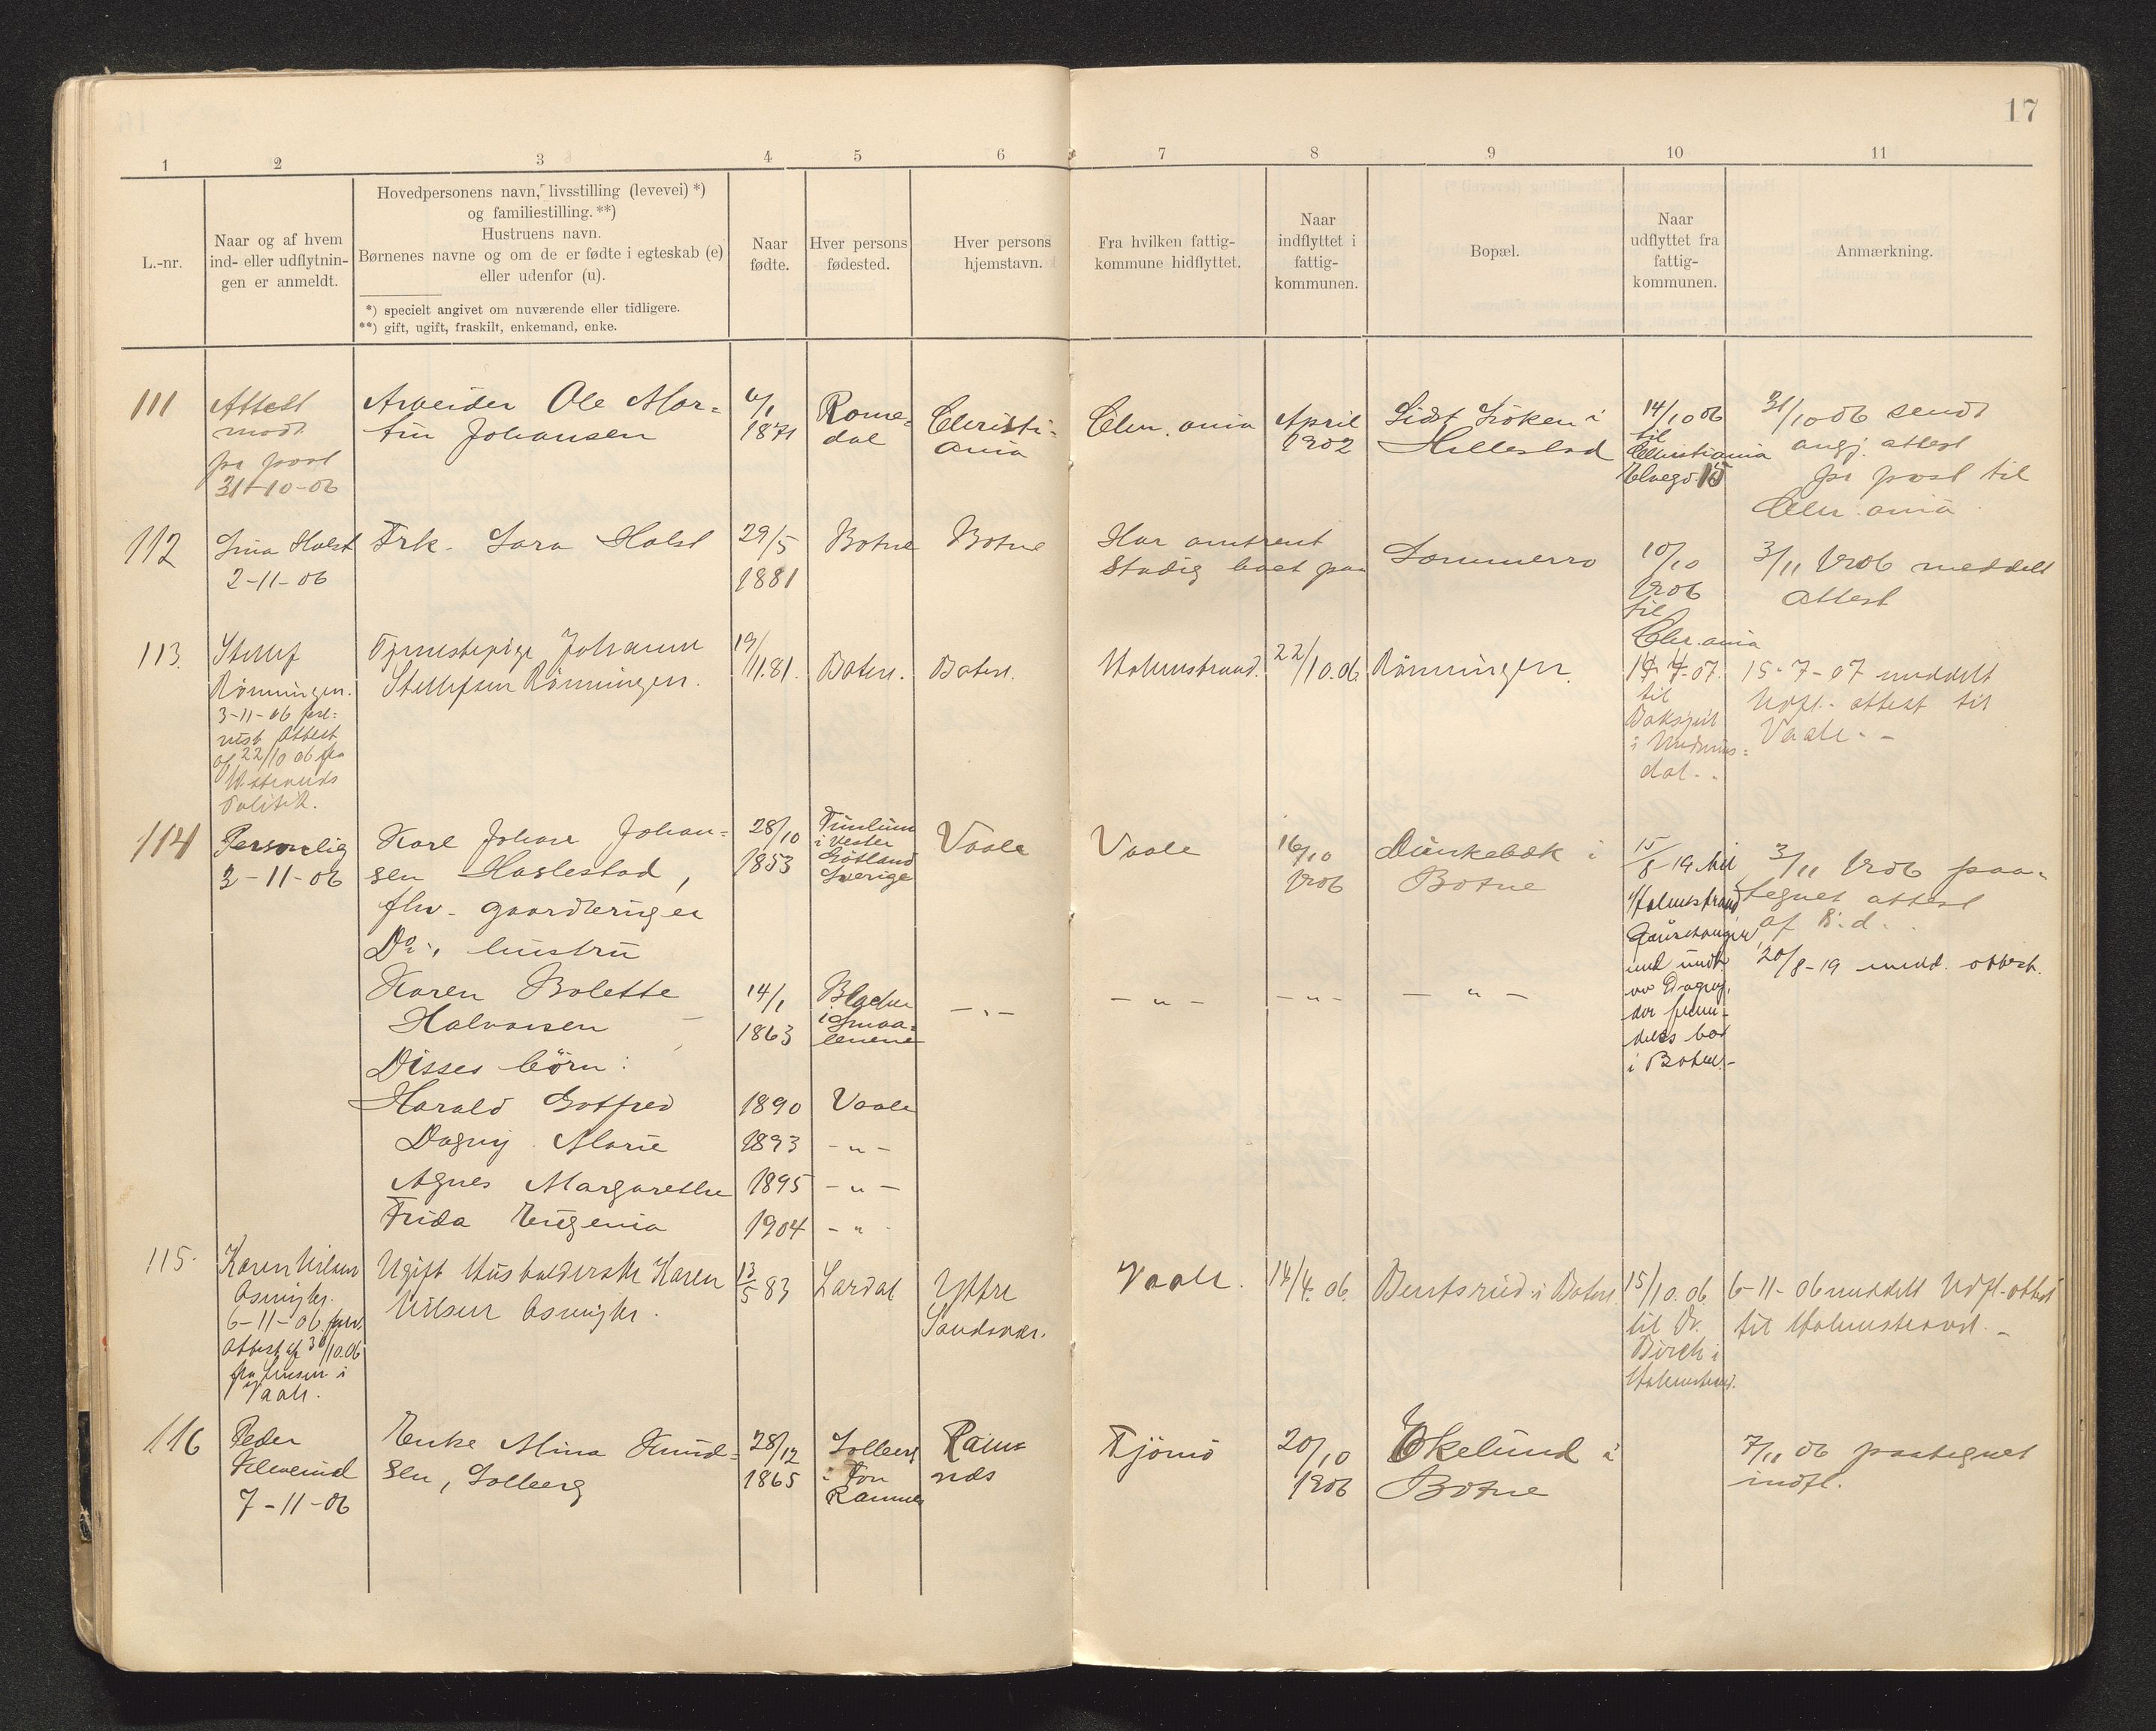 17
1 2 3 4 5 6 7 8 9 10 11
L.-nr.
Naar og af hvem
ind- eller udflytnin-
gen er anmeldt.
Hovedpersonens navn, livsstilling (levevei) *)
og familiestilling. **)
Hustruens navn.
Børnenes navne og om de er fødte i egteskab (e)
eller udenfor (u).
*) specielt angivet om nuværende eller tidligere.
**) gift, ugift, fraskilt, enkemand, enke.
Naar
fødte.
Hver persons
fødested.
Hver persons
hjemstavn.
Fra hvilken fattig-
kommune hidflyttet.
Naar
indflyttet i
fattig-
kommunen.
Bopæl.
Naar
udflyttet fra
fattig-
kommunen.
Anmærkning.
111
Attest
modt.
pr post
31-10-06
Arbeider Ole Mar-
tin Johansen
6/1
1871
Rome-
dal
Christi-
ania
Chr.ania
April
1902
Sidst Löken i
Hillestad
14/10 06
til
Christiania
Elvegd. 15
31/10 06 sendt
angj. attest
pr post til
Chr.ania
112
Lina Holst
2-11-06
Frk. Sara Holst
29/5
1881
Botne
Botne
Har omtrent
Stadig boet paa
Sommerro
10/10
1906
til
Chr.ania
3/11 1906 meddelt
attest
113.
Stellef
Rönningen.
3-11-06 forе-
vist Attest
af 22/10 06 fra
Politik.
Tjenestepige Johanne
Stellefsen Rönningen.
19/
11.81.
Botne.
Botne.
Holmstrand.
22/10.06
Rönningen.
14-4-07.
til
i Undrums-
dal.-
15-7-07 meddelt
Udfl.-attest til
Vaale.-
114
Personlig
3-11-06
Karl Johan Johan-
sen Haslestad,
fhv. gaardbruger
Do., hustru
Karen Bolette
Halvorsen
Disses börn:
Harald Gotfred
Dagny Marie
Agnes Margarethe
Frida Eugenia
28/10
1853
14/1
1863
1890
1893
1895
1904
i Vester
Götland
Sverige
i Smaa-
lenene
Vaale
-"-
-"-
-"-
Vaale
-"-
Vaale
-"-
16/10
1906
-"-
Dunkebæk i
Botne
-"-
15/8-19 til
Holmstrand
der frem-
deles bor
i Botne.-
3/11 1906 paa-
tegnet attest
af s.d.
20/8-19 medd. attest.
115.
Karen Nilsen
6-11-06 forev.
Attest af 30/10.06
fra Lensm. i
Vaale.
Ugift Husholderske Karen
Nilsen
13/5 83
Lardal
Yttre
Sandsvær.
Vaale.
14/4. 06.
Bentsrud i Botne.
15/10.06.
til Dr.
Birch i
Holmstrand.
6-11-06 meddelt Udfl.-attest
til Holmstrand.-
116
Peder
7-11-06
Enke Mina Knud-
sen, Solberg
28/12
1865
Solberg
i Fon
Ramnes
Ram-
nes
Tjömö
20/10
1906
Ekelund i
Botne
7/11 06 paategnet
indfl.